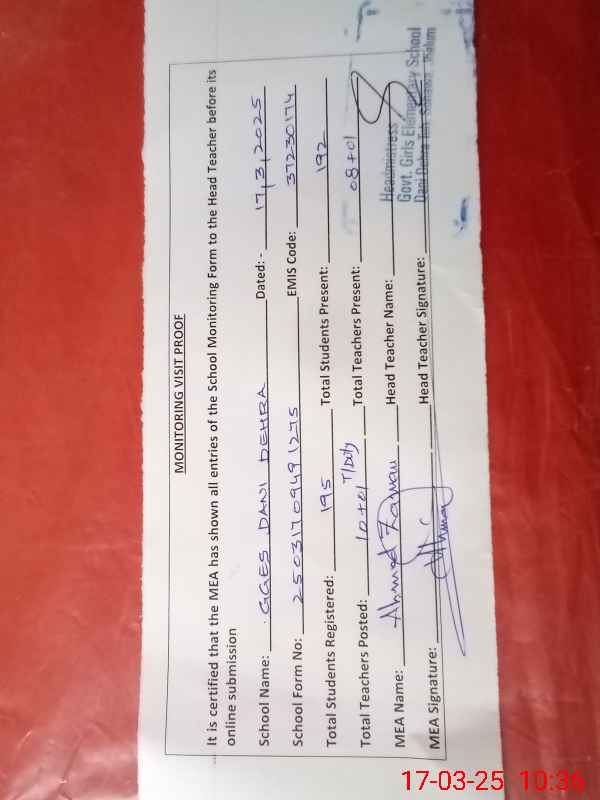 MONITORING VISIT PROOF
It is certified that the MEA has shown all entries of the School Monitoring Form to the Head Teacher before its
online submission
School Name: GGES DANI DEHRA Dated: - 17/3/2025
School Form No: 2503170949 1275 EMIS Code: 37230174
Total Students Registered: 195 Total Students Present: 192
Total Teachers Posted: 10+01 T/Duty Total Teachers Present: 08+01
MEA Name: Ahmed Head Teacher Name:
MEA Signature: Head Teacher Signature:
Headmistress
Govt. Girls Elementary School
Dani Dehra Teh: Sohawa Jhelum
17-03-25 10:36